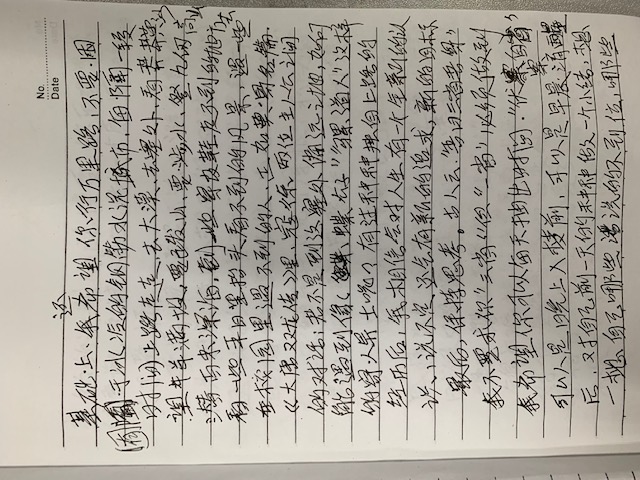 No.
Date
还
基础上,我希望你行万里路,不要困
囿于冰冷的钢筋水泥城市,每隔一段
时间上路走走,去大漠,去塞外,看莽莽黄沙
望牛羊满坡,要跋山,要涉水,登九仞高山
潜百米深海,到一些穿皮鞋去不到的地方去
看一些平日里抬头看不到的风景,遇一些
在校园里遇不到的人,正如黄易名篇
《大唐双龙传》里,寇徐两位主人公之间
的对话:若不是到这塞外偏远之地,如何
能遇到像“蝶公子”“骡道人”这样
的奇人异士呢?有过种种独自上路的
经历后,我相信会对人生有一个全新的认
识,说不定还会有新的追求,新的目标
最后,保持思考。古人云:“吾日三省吾身”
我不要求你“三省”但“一省”必须做到
我希望你可以每天抽出时间,“伏案自省”
可以是晚上入楼前,可以是早晨清醒
后,对自己前一天的种种做一个小结,想
一想自己哪些话说的不到位,哪些